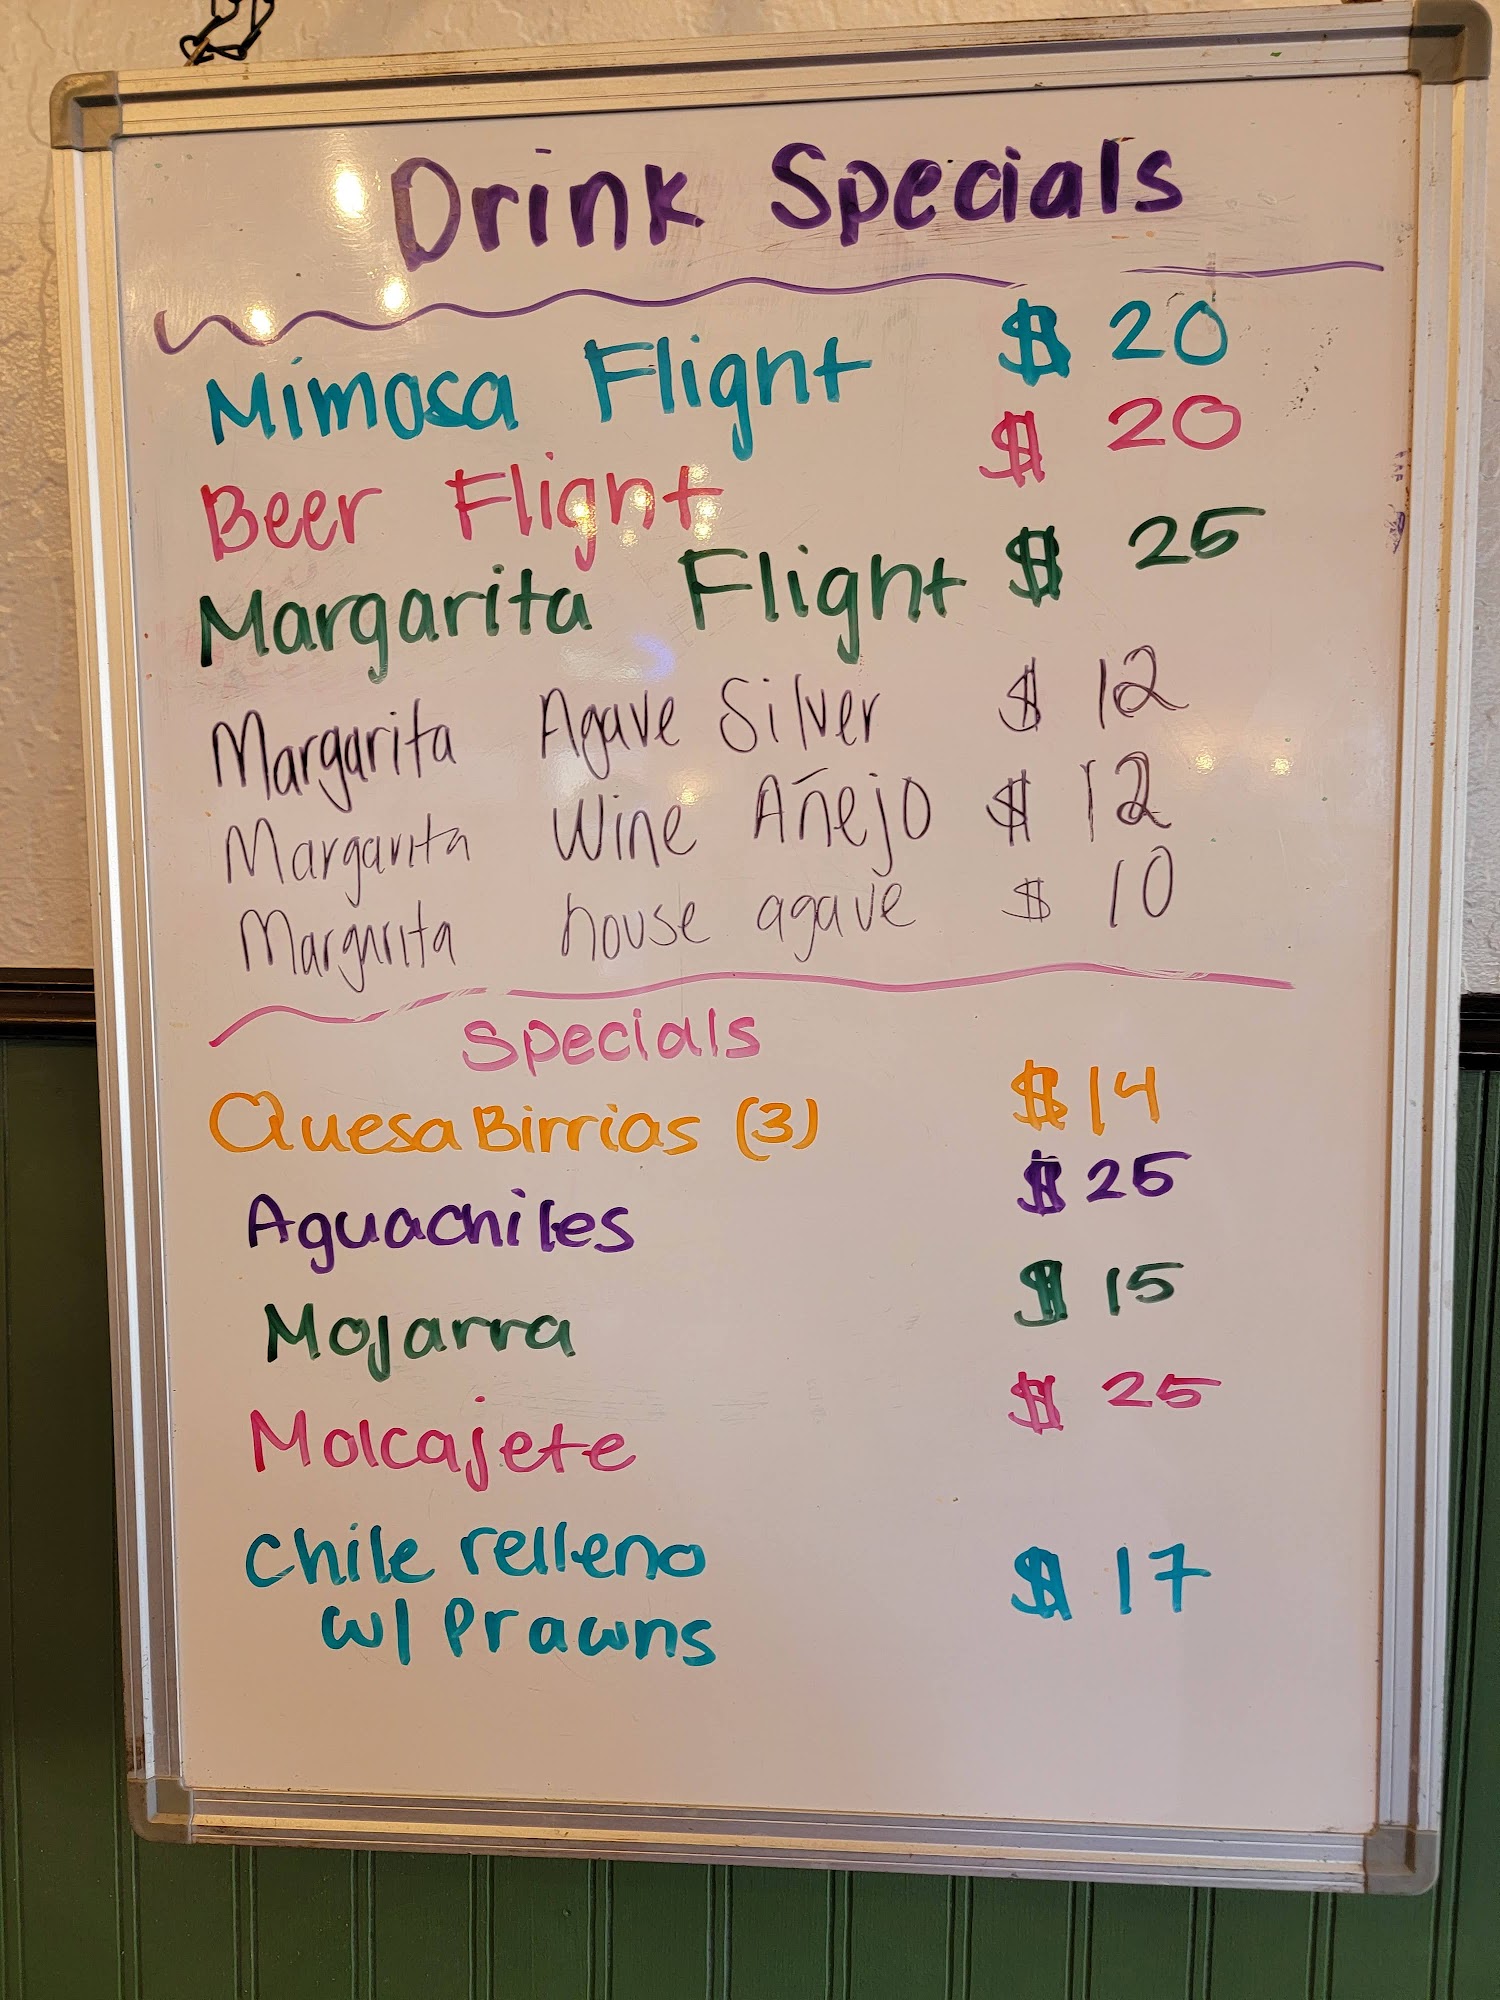 Drink Specials
Mimosa Flight $ 20
Beer Flight $ 20
Margarita Flight $ 25
Margarita Agave Silver $ 12
Margarita Wine Añejo $ 12
Margarita house agave $ 10
Specials
QuesaBirrias (3) $ 14
Aguachiles $ 25
Mojarra $ 15
Molcajete $ 25
Chile relleno $ 17
w/ Prawns